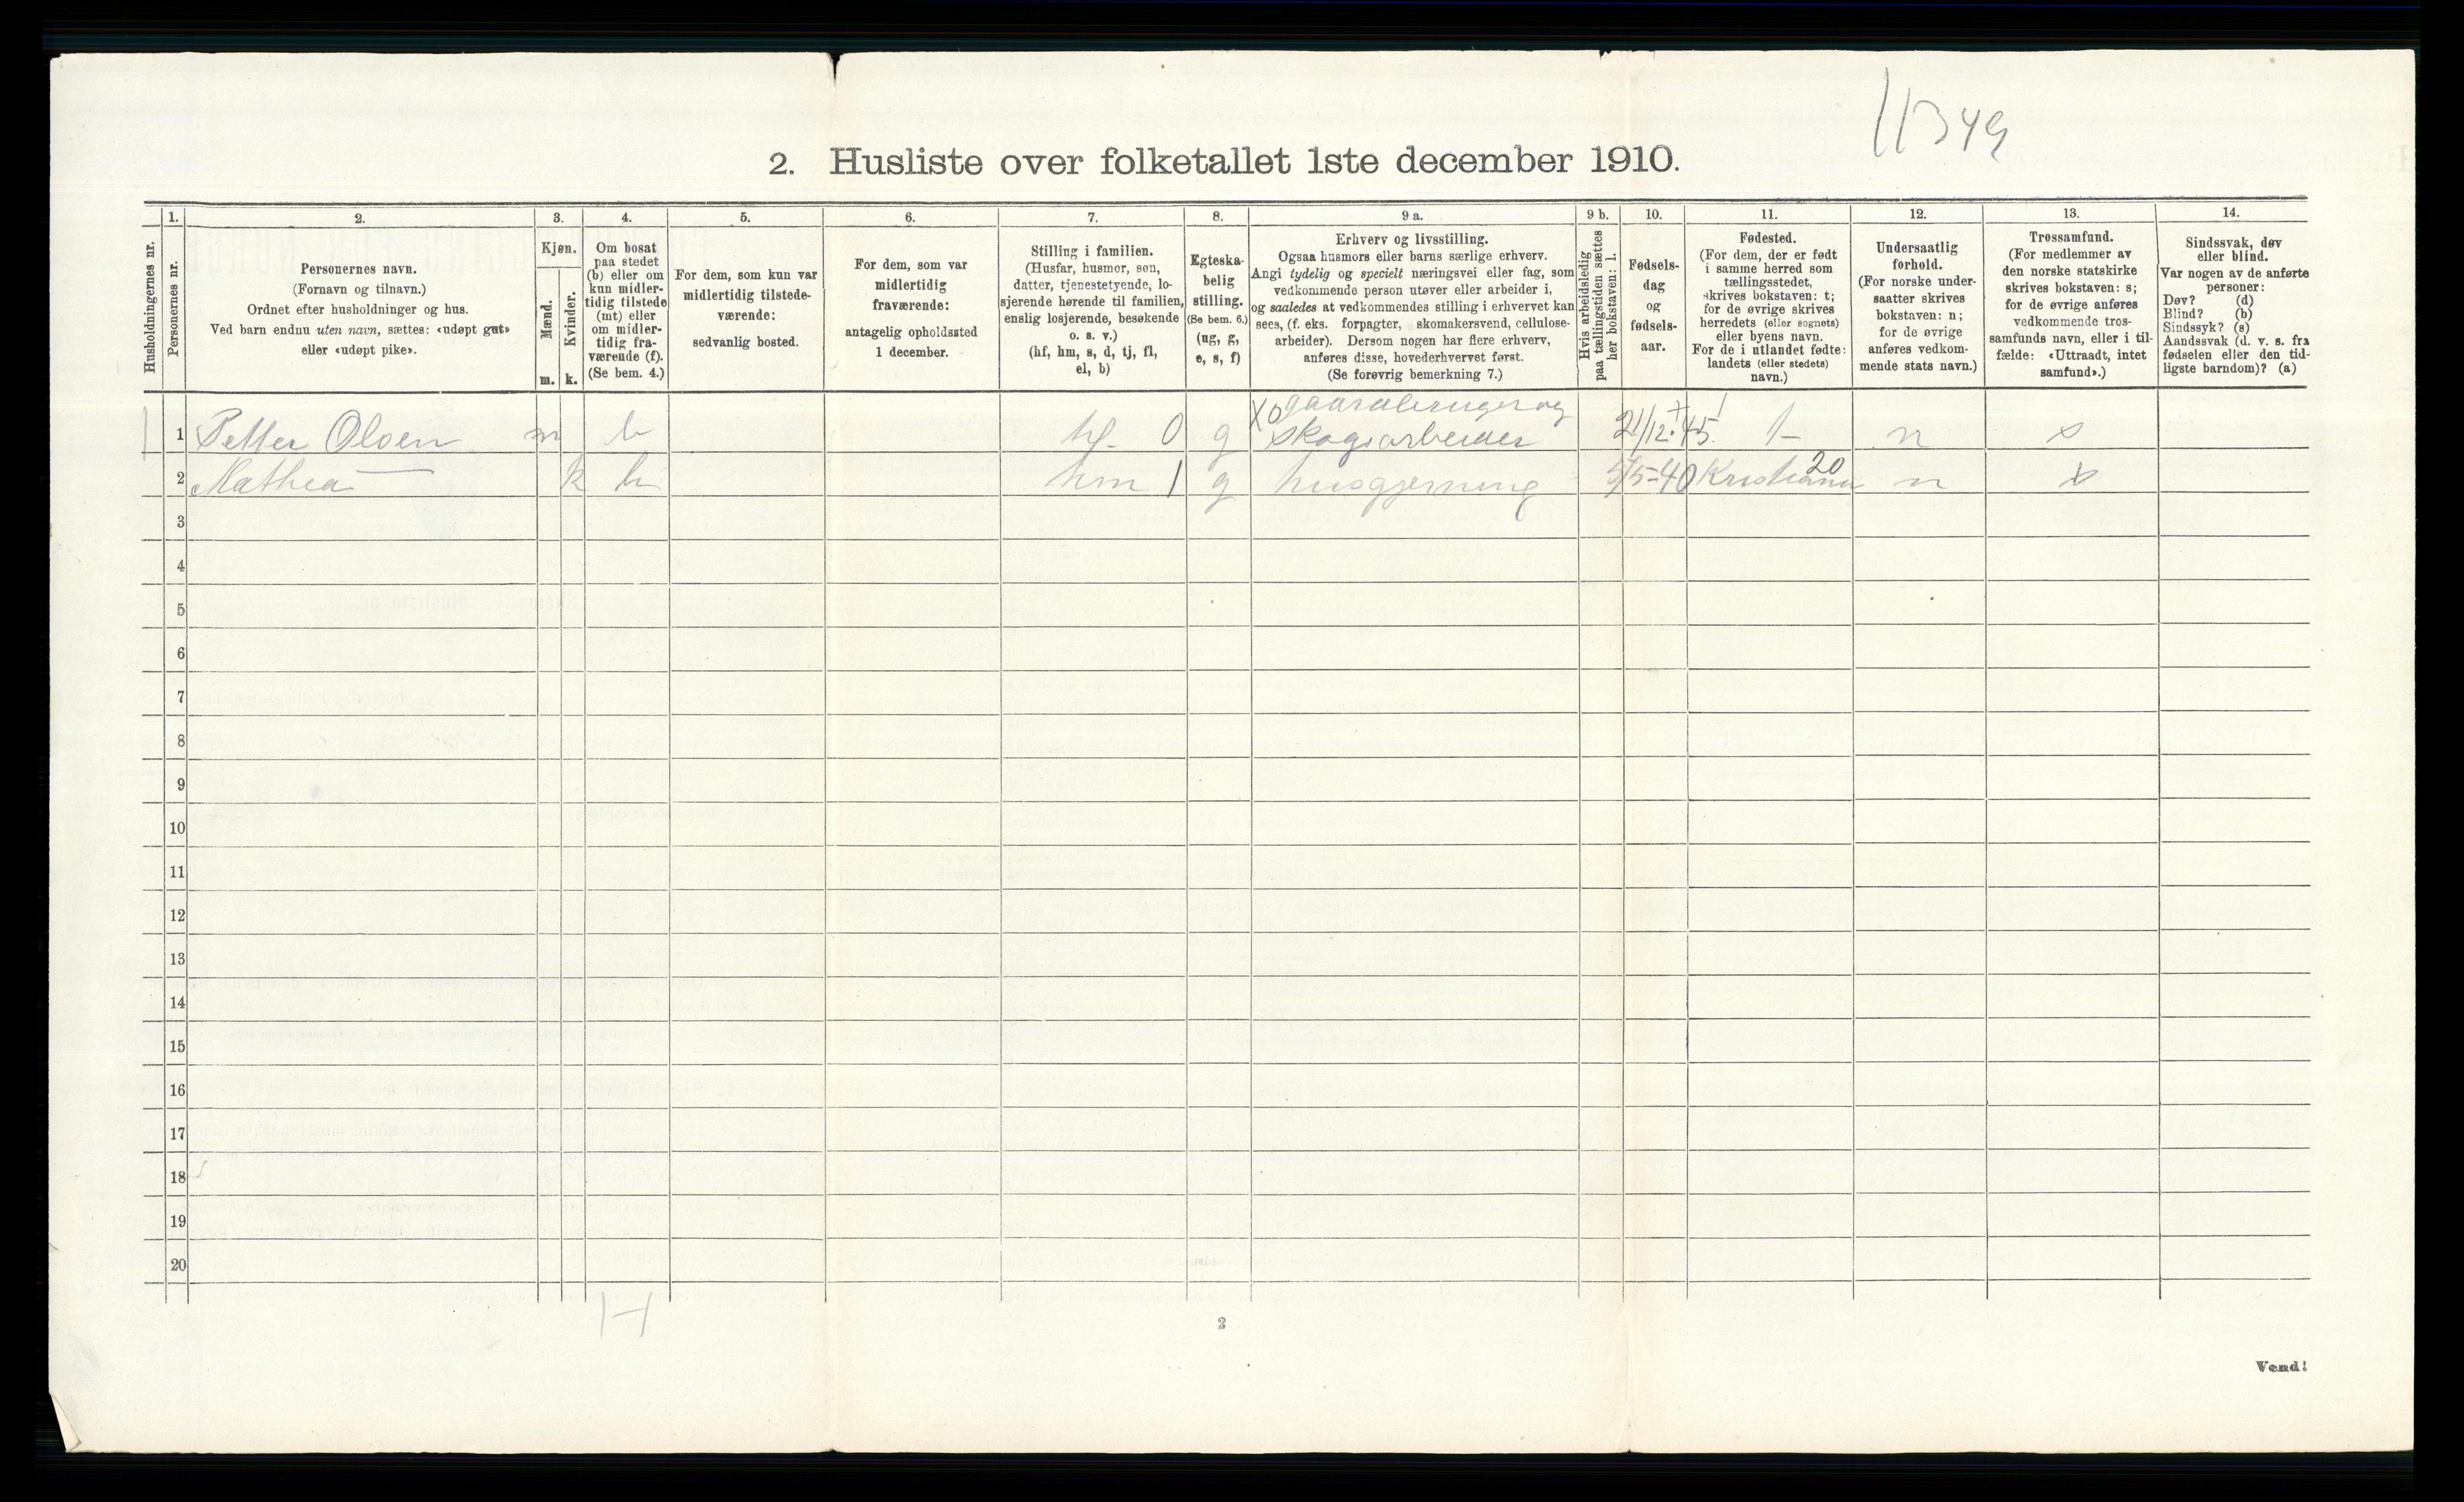 11349
2. Husliste over folketallet 1ste december 1910.
Husholdningernes nr.
1.
Personernes nr.
2.
Personernes navn.
(Fornavn og tilnavn.)
Ordnet efter husholdninger og hus.
Ved barn endnu uten navn, sættes: «udøpt gut»
eller «udøpt pike».
3.
Kjøn.
Mænd.
m.
Kvinder.
k.
4.
Om bosat
paa stedet
(b) eller om
kun midler-
tidig tilstede
(mt) eller
om midler-
tidig fra-
værende (f).
(Se bem. 4.)
5.
For dem, som kun var
midlertidig tilstede-
værende:
sedvanlig bosted.
6.
For dem, som var
midlertidig
fraværende:
antagelig opholdssted
1 december.
7.
Stilling i familien.
(Husfar, husmor, søn,
datter, tjenestetyende, lo-
sjerende hørende til familien,
enslig losjerende, besøkende
o. s. v.)
(hf, hm, s, d, tj, fl,
el, b)
8.
Egteska-
belig
stilling.
(Se bem. 6.)
(ug, g,
e, s, f)
9 a.
Erhverv og livsstilling.
Ogsaa husmors eller barns særlige erhverv.
Angi tydelig og specielt næringsvei eller fag, som
vedkommende person utøver eller arbeider i,
og saaledes at vedkommendes stilling i erhvervet kan
sees, (f. eks. forpagter, skomakersvend, cellulose-
arbeider). Dersom nogen har flere erhverv,
anføres disse, hovederhvervet først.
(Se forøvrig bemerkning 7.)
9 b.
Hvis arbeidsledig
paa tællingstiden sættes
her bokstaven: l.
10.
Fødsels-
dag
og
fødsels-
aar.
11.
Fødested.
(For dem, der er født
i samme herred som
tællingsstedet,
skrives bokstaven: t;
for de øvrige skrives
herredets (eller sognets)
eller byens navn.
For de i utlandet fødte:
landets (eller stedets)
navn.)
12.
Undersaatlig
forhold.
(For norske under-
saatter skrives
bokstaven: n;
for de øvrige
anføres vedkom-
mende stats navn.)
13.
Trossamfund.
(For medlemmer av
den norske statskirke
skrives bokstaven: s;
for de øvrige anføres
vedkommende tros-
samfunds navn, eller i til-
fælde: «Uttraadt, intet
samfund».)
14.
Sindssvak, døv
eller blind.
Var nogen av de anførte
personer:
Døv? (d)
Blind? (b)
Sindssyk? (s)
Aandssvak (d. v. s. fra
fødselen eller den tid-
ligste barndom)? (a)
1 1 Petter Olsen m b hf. 0 g X0 gaardbruger og
skogsarbeider 21/12 45. t n s
2 Mathea — k b hm 1 g husgjerning 5/5-40 Kristiania 20 n s
3
4
5
6
7
8
9
10
11
12
13
14
15
16
17
18
19
20
1-1
2
Vend!